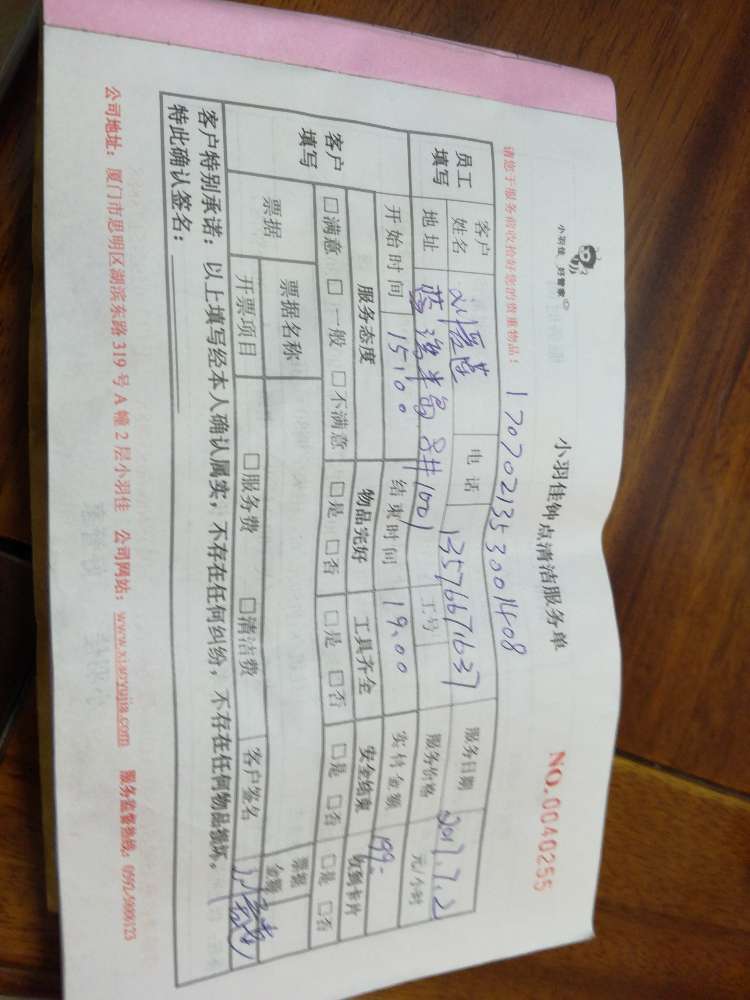 小羽佳 好管家
小羽佳钟点清洁服务单
NO.0040255
请您于服务前收拾好您的贵重物品!
1707021353001408
员工填写
客户姓名
电话
13576671637
服务日期
2017.7.2
地址
8#1001
工号
服务价格
元/小时
开始时间 15:00 结束时间 19:00 实付金额 199-
客户填写
服务态度 物品完好 工具齐全 安全结束 收到卡片
□满意 □一般 □不满意 □是 □否 □是 □否 □是 □否 □是 □否
票据
票据名称
票据金额
开票项目 □服务费 □清洁费 客户签名
客户特别承诺:以上填写经本人确认属实,不存在任何纠纷,不存在任何物品损坏,
特此确认签名:
公司地址:厦门市思明区湖滨东路 319 号 A 幢 2 层小羽佳 公司网站:www.xiaoyujia.com 服务监督热线:0592-5888123